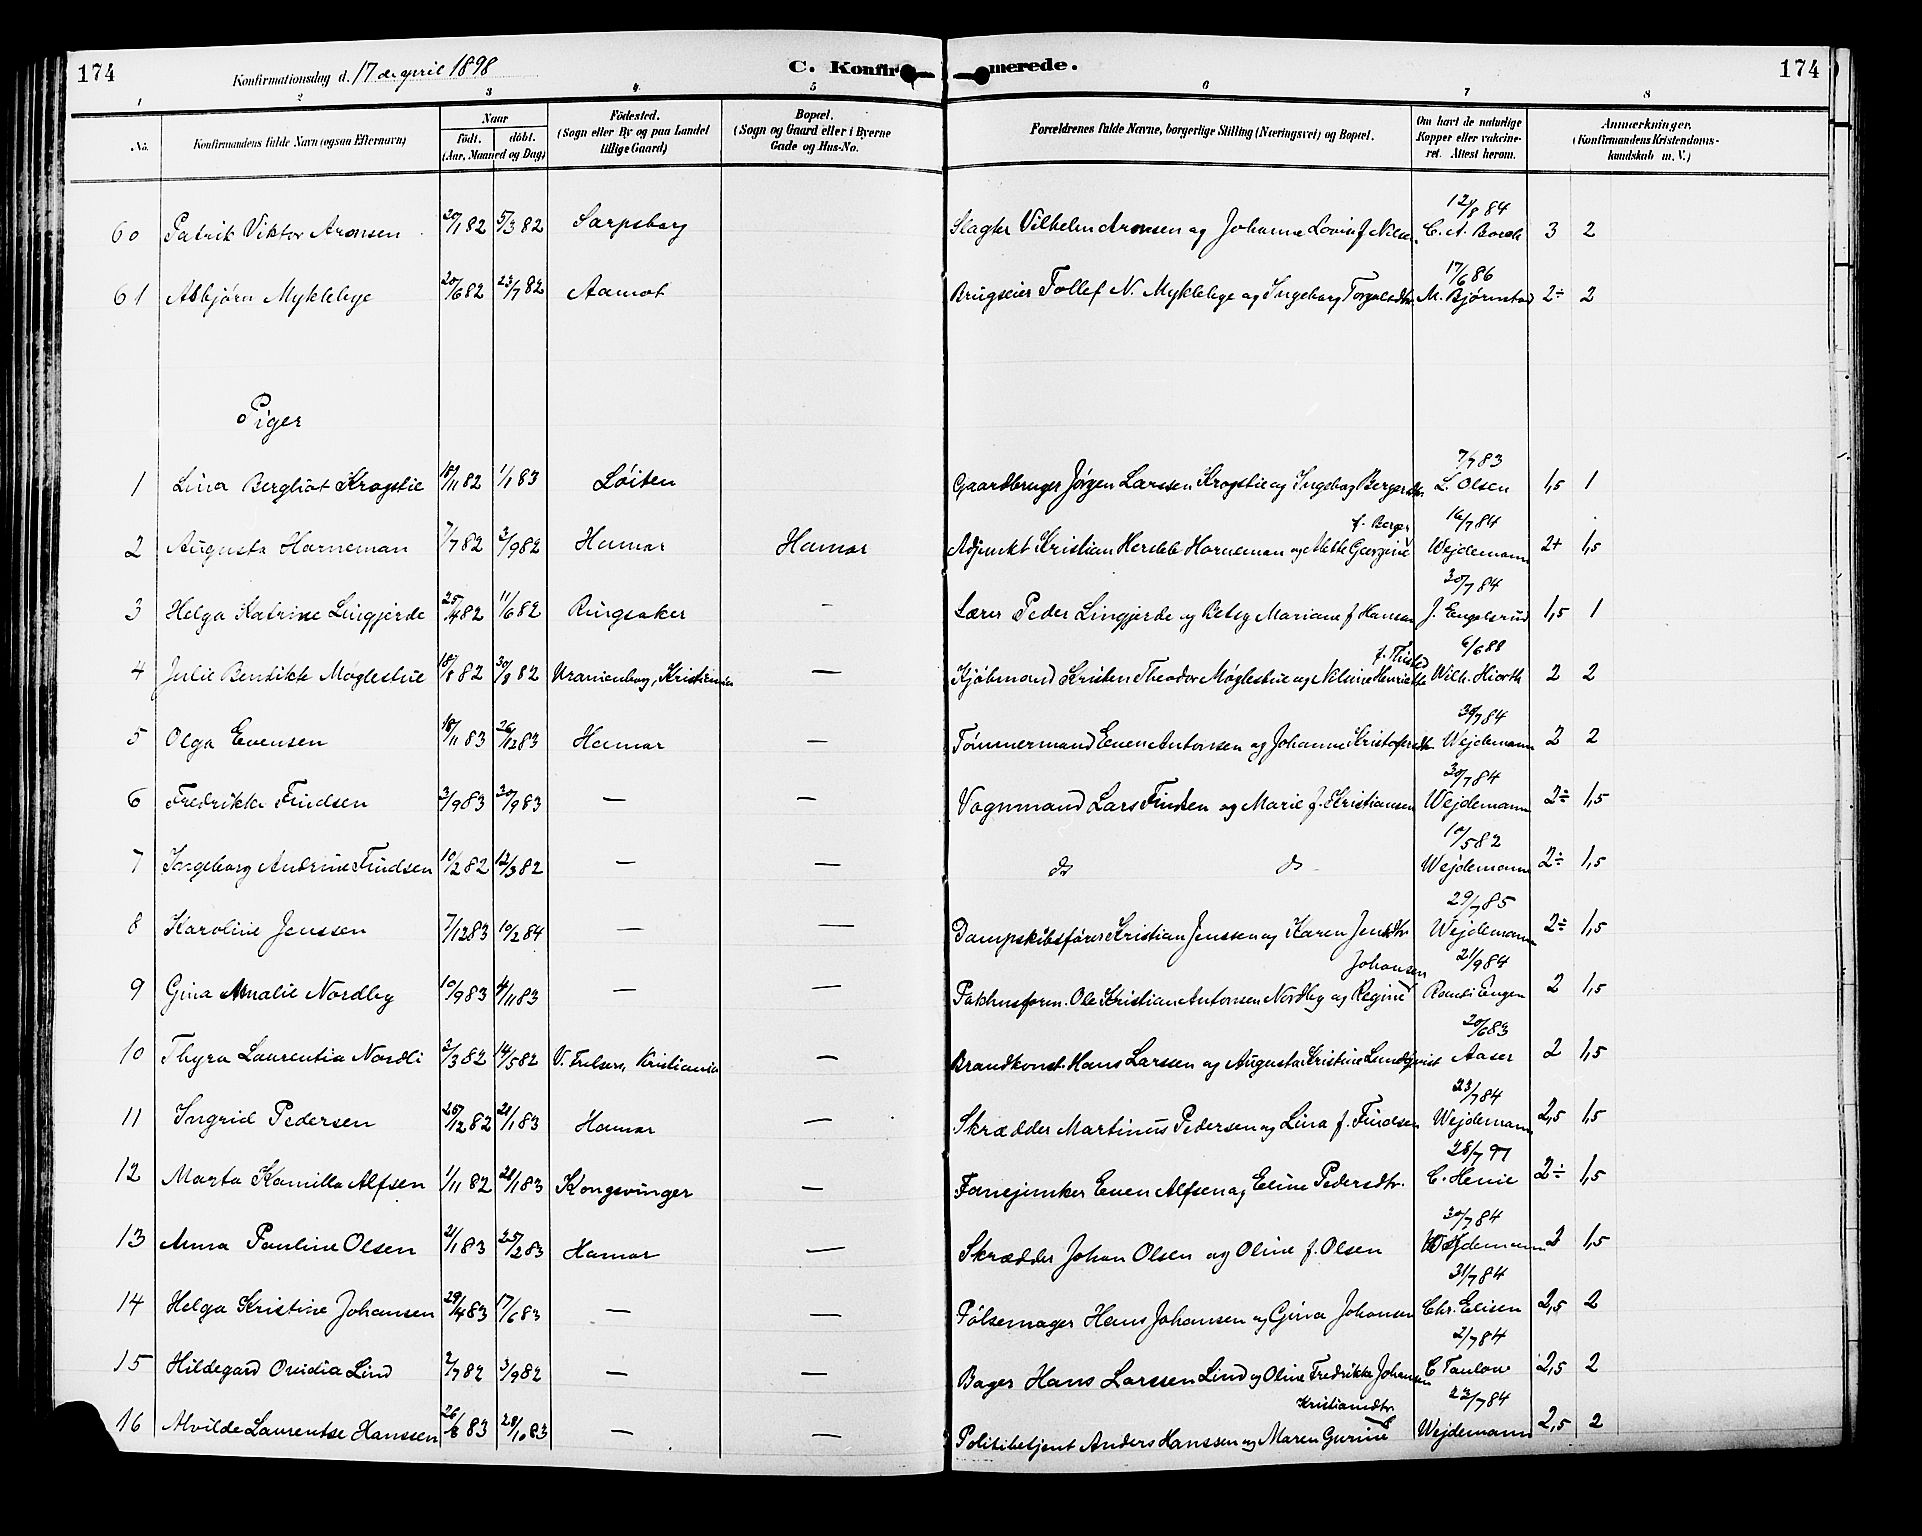 174 Konfirmationsdag d. 17de april 1898 C. Konfirmerede. 174
1 2 3 4 5 6 7 8
No. Konfirmandens fulde Navn (ogsaa Efternavn) Naar født. døbt. (Aar, Maaned og Dag) Fødested. (Sogn eller By og paa Landet tillige Gaard) Bopæl. (Sogn og Gaard eller i Byerne Gade og Hus-No. Forældrenes fulde Navne, borgerlige Stilling (Næringsvei) og Bopæl. Om havt de naturlige Kopper eller vakcineret. Attest herom. Anmærkninger. (Konfirmandens Kristendomskundskab m. V.)
60 Patrik Viktor Aronsen 20/1 82 5/3 82 Sarpsborg Slagter Vilhelm Aronsen og Johanne Lovise f. Nilsen 12/8 84 C. A. Borch 3 2
61 Asbjørn Myklebye 20/6 82 23/7 82 Aamot Brugseier Tollef N. Myklebye og Ingeborg 17/6 86 M. Bjørnstad 2÷ 2
Piger
1 Lina Bergliot Krogstie 18/11 82 1/1 83 Løiten Gaardbruger Jørgen Larssen Krogstie og Ingebog Bergersdtr. 7/7 83 L. Olsen 1,5 1
2 Augusta Horneman 7/7 82 3/9 82 Hamar Hamar Adjunkt Kristian Hersleb Horneman og Mette Georgine f. Berger 16/7 84 Wejdemann 2+ 1,5
3 Helga Katrine Lingjerde 25/4 82 11/6 82 Ringsaker — Lærer Peder Lingjerde og Betsy Mariane f Hansen 30/7 84 J. Engelsrud 1,5 1
4 Julie Bendikte Møglestue 18/8 82 30/8 82 Uranienborg, Kristiania — Kjøbmand Kristen Theodor Møglestue og Nilsine Henriette f. Thisted 6/6 88 Wilh. Hiorth 2 2
5 Olga Evensen 18/11 83 26/12 83 Hamar — Tømmermand Even Antonsen og Johanne Kristofersdtr 30/7 84 Wejdemann 2 2
6 Fredrikke Findsen 3/9 83 30/9 83 — — Vognmand Lars Findsen og Marie f. Kristiansen 30/7 84 Wejdemann 2÷ 1,5
7 Ingeborg Andrine Findsen 10/2 82 12/3 82 — — do do 10/5 82 Wejdemann 2÷ 1,5
8 Karoline Jenssen 7/12 83 10/2 84 — — Dampskibsfører Kristian Jenssen og Karen Jensdtr 29/7 85 Wejdemann 2÷ 1,5
9 Gina Amalie Nordby 10/9 83 4/11 83 — — Pakhusform. Ole Kristian Antonsen Nordby og Regine Johansen 21/9 84 Randi Engen 2 1,5
10 Thyra Laurentia Nordli 3/3 82 14/5 82 V. Frelsers, Kristiania — Brandkonst. Hans Larssen og Augusta Kristine Lundqvist 20/6 83 Aaser 2 1,5
11 Ingrid Pedersen 25/12 82 21/1 83 Hamar — Skrædder Martinus Pedersen og Lina f. Findsen 23/7 84 Wejdemann 2,5 1,5
12 Marta Kamilla Alfsen 1/11 82 21/1 83 Kongsvinger — Fanejunker Even Alfsen og Eline Pedersdtr. 28/7 97 C. Henie 2÷ 1,5
13 Anna Pauline Olsen 21/1 83 25/2 83 Hamar — Skrædder Johan Olsen og Oline f. Olsen 30/7 84 Wejdemann 2 1,5
14 Helga Kristine Johansen 29/4 83 17/6 83 — — Pølsemager Hans Johansen og Gina Johansen 31/7 84 Chr. Elisen 2,5 2
15 Hildegard Ovidia Lind 2/7 82 3/9 82 — — Bager Hans Larssen Lind og Oline Fredrikke Johansen 2/7 84 C Taulow 2,5 2
16 Alvilde Laurentse Hanssen 26/8 83 28/10 83 — — Politibetjent Anders Hanssen og Maren Gurine Kristiansdtr. 23/7 84 Wejdemann 2,5 2